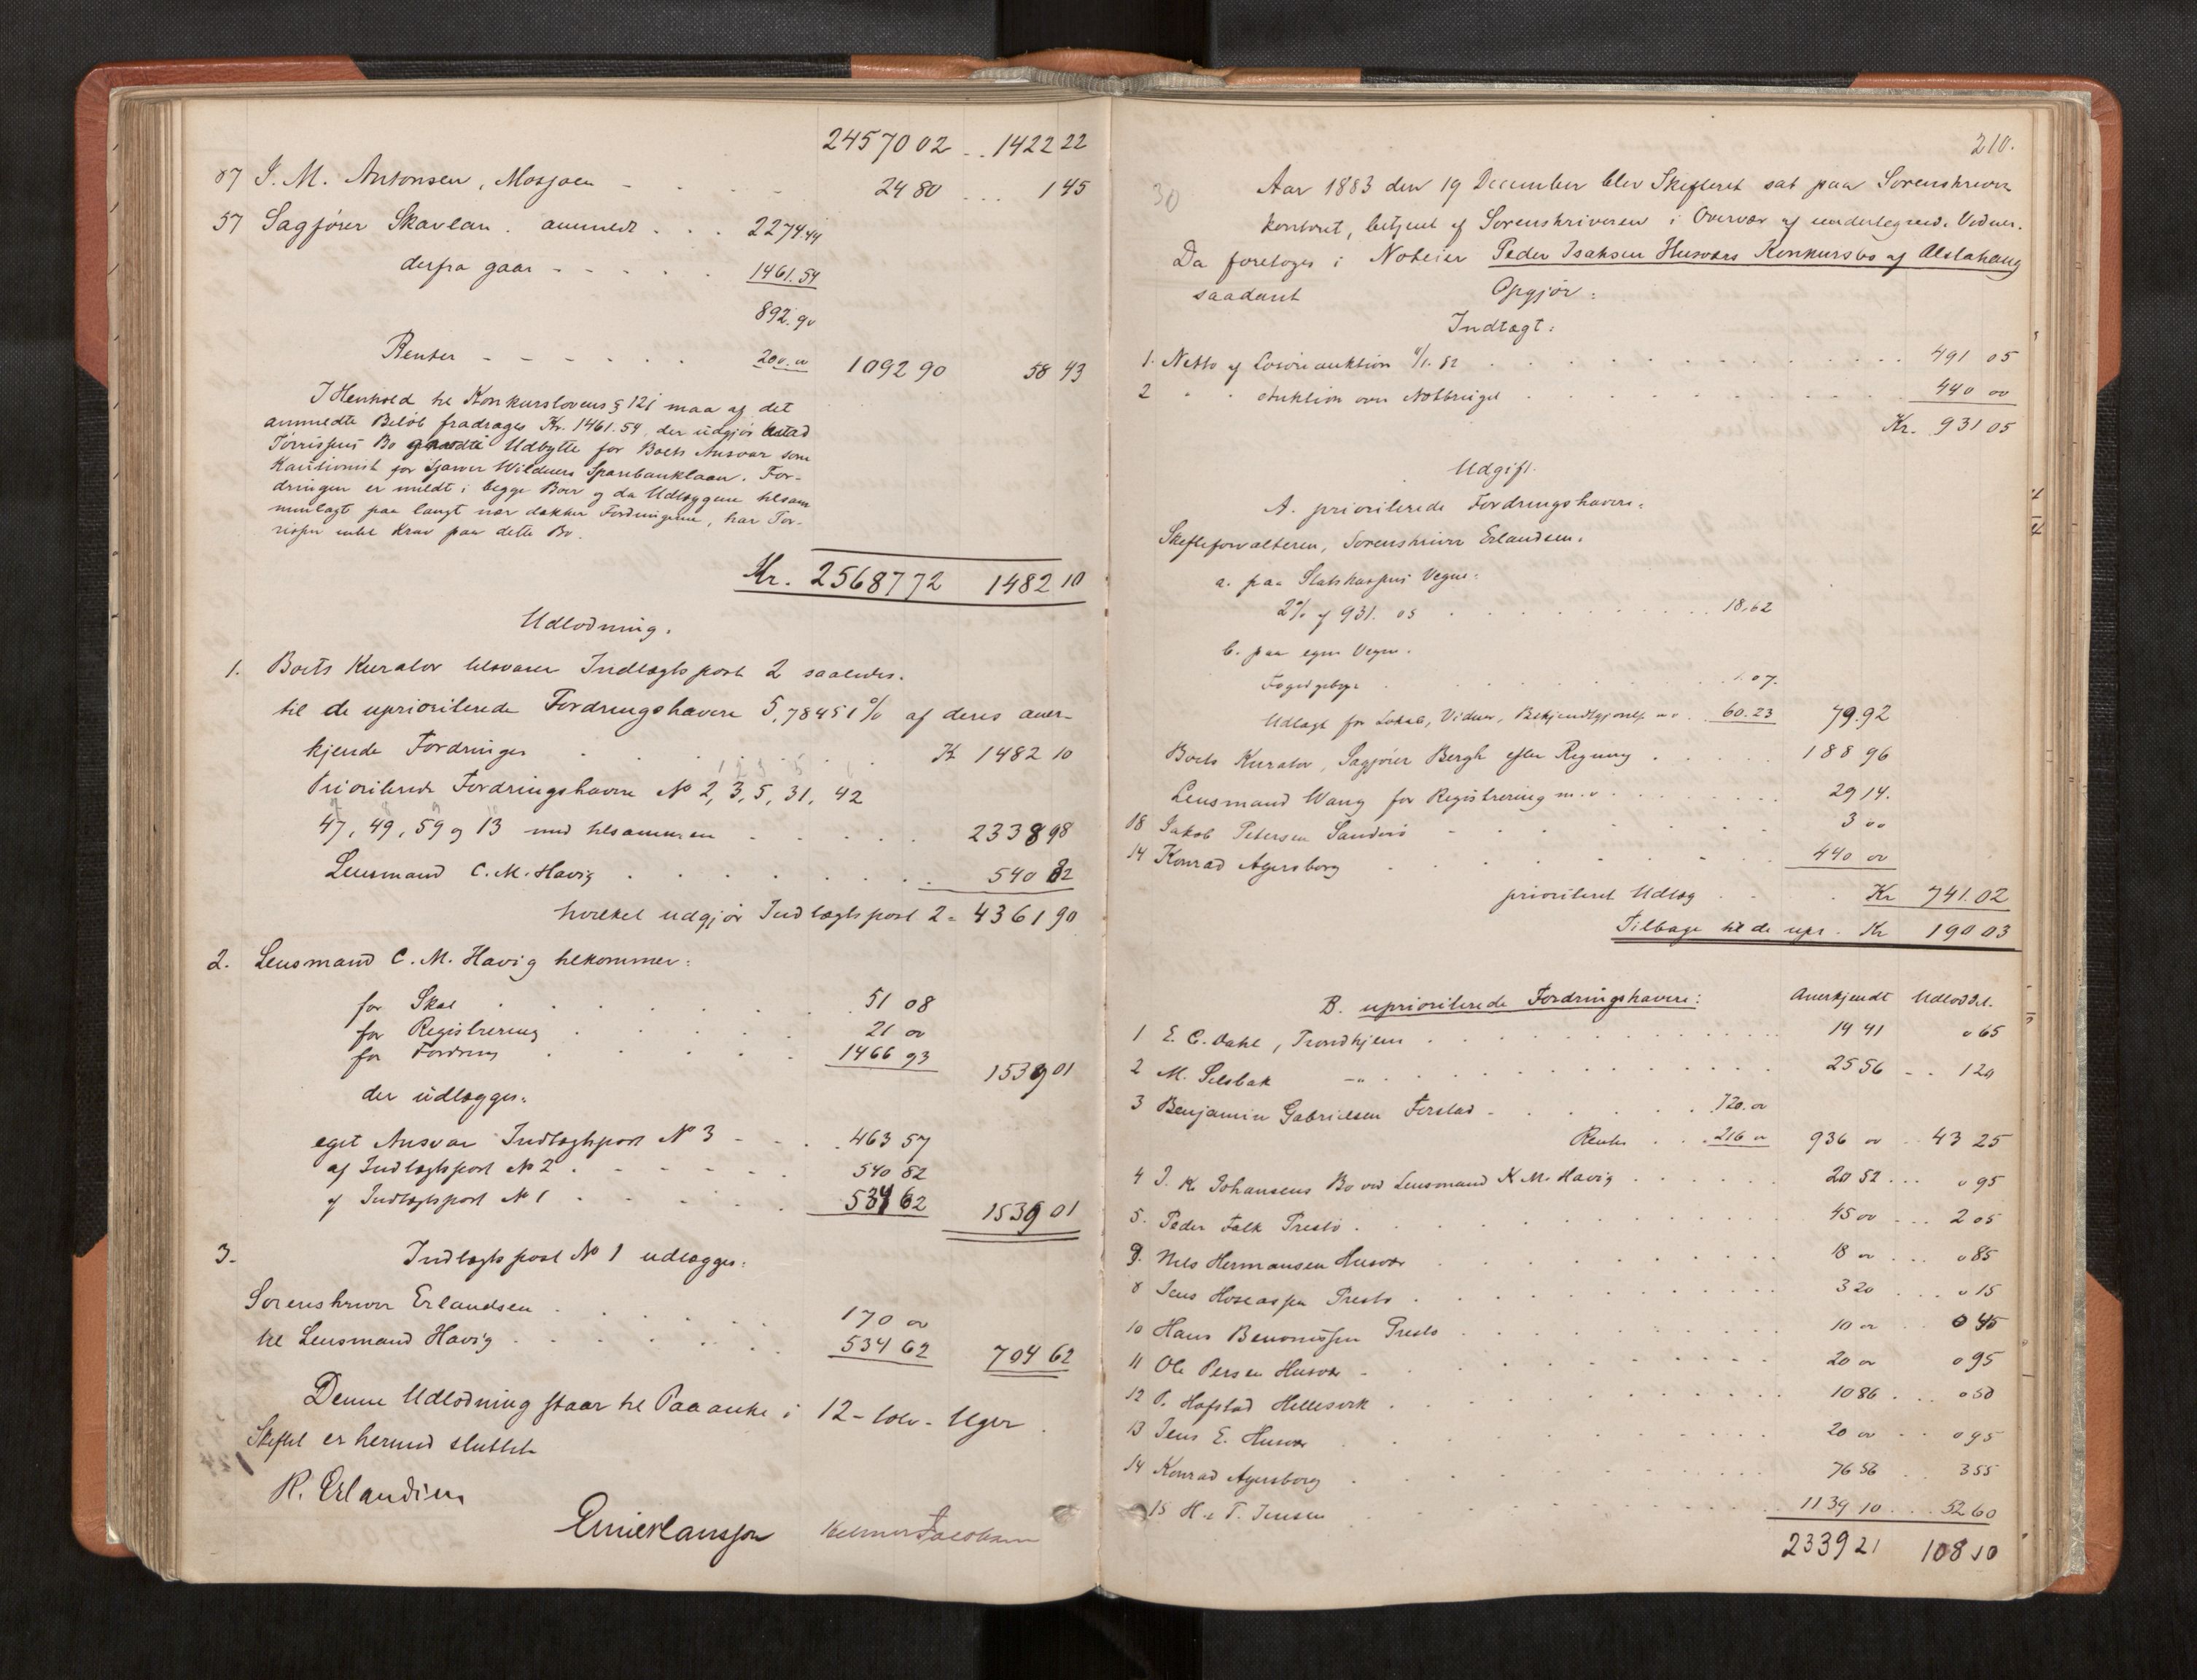 2457002 .. 1422 22
87 J. M. Antonsen, Mosjøen - . . - 24 80 ... 1 45
57 Sagfører Skavlan. anmeldt . . . 2274.44
derfra gaar - - - - . . 1461.54
892.90
Renter - - - - - . . 200.00 1092 90 58 43
I Henhold til Konkurslovens § 121 maa af det
anmeldte Beløb fradrages Kr. 1461.54, der udgjør
Tørrissens Bo Udbytte for Boets Ansvar som
Kautionist for Wildners Sparebanklaan. For-
dringen er meldt i begge Boer og da Udlæggene tilsam
menlagt paa langt nær dækker Fordringerne, har Tor-
rissen intet Krav paa dette Bo.
Kr. 25687 72 1482 10
Udlodning.
1. Boets Kurator tilsvarer Indtægtspost 2 saaledes.
til de uprioriterede Fordringshavere 5,78451 % af deres aner-
kjendte Fordringer . . . . . . . K 1482 10
Prioriterede Fordringshavere No 2, 3, 5, 31, 42
47, 49, 59 og 13 med tilsammen - - . . . . 2338 98
Lensmand C. M. Havig . . . . . . . . 540 82
hvilket udgjør Indtægtspost 2 = 4361 90
2. Lensmand C. M. Havig tilkommer:
for Skat . . . . . . 51 08
for Registrering . . . . . 21 00
for Fordring . . . . . 1466 93
1539 01
der udlægges:
eget Ansvar Indtægtspost No 3 - - . . 463 57
af Indtægtspost No 2 . - - - - . 540 82
af Indtægtspost No 1 . . . . . . 534 62 1539 01
3. Indtægtspost No 1 udlægges:
Sorenskriver Erlandsen . . . . . . 170 00
til Lensmand Havig . . . . . . . 534 62 704 62
Denne Udlodning staar til Paaanke i 12 - tolv - Uger.
Skiftet er hermed sluttet
R. Erlandsen
Emil Hanssen Jacobsen
210.
30 Aar 1883 den 19 December blev Skifteret sat paa Sorenskriver
kontoret, betjent af Sorenskriveren i Overvær af undertegnede Vidner.
Da foretoges i Noteier Peder Isaksen Husværs Konkursbo af Alstahaug
saadant Opgjør:
Indtægt:
1. Netto af Løsøreauktion . . . . . . . 491 05
2 " " Auktion over Notbruget . . . . . . 440 00
Kr. 931 05
Udgift.
A. prioriterede Fordringshavere:
Skifteforvalteren, Sorenskriver Erlandsen:
a. paa Statskassens Vegne:
2% af 931. 05 . . . . . . . . 18.62
b. paa egne Vegne.
Fogedgebyr . . . . . . . . 1.07.
Udlagt for Lokale, Vidner, Bekjendtgjørelse m.v. 60.23 79.92
Boets Kurator, Sagfører Bergh efter Regning . . . . . 188 96
Lensmand Wang for Registrering m.v. . . . . . . 29 14.
18 Jakob Petersen Sandvis . . . . . . . 3 00
14 Konrad Agersborg . . . . . . . 440 00
prioriteret Udlæg . . . Kr 741.02
Tilbage til de upr. Kr 190 03
B. uprioriterede Fordringshavere: Anerkjendt Udloddet.
1 E. C. Dahl, Trondhjem . . . . . . . 14 41 0 65
2 M. Selsbak -"- . . . . . . . 25 56 - - 1 20
3 Benjamin Gabrielsen Ferstad - . . . . 720.00
Renter . . . 216 00 936 00 .. 43 25
4 J. K. Johansens Bo ved Lensmand K M. Havig . . . . 20 52 ... 0 95
5. Peder Falk Prestø . . . . . . . 45 00 ... 2 05
9. Nils Hermansen Husvær . . . . . . 18 00 ... 0 85
8 Jens Hoseassen Prestø . . . . . . . 3 20 ... 0 15
10 Hans Benonissen Prestø . . . . . . . 10 00 .. 0 45
11 Ole Persen Husvær - . . . . . . . 20 00 0 95
12 P. Hofstad Hellesvik . . . . . . . 10 86 . . . 0 50
13 Jens E. Husvær . . . . . . . 20 00 .. 0 95
14 Konrad Agersborg . . . . . . . 76 56 . . 3 55
15 H. T. Jensen . . . . . . . 1139 10 ... 52 60
2339 21 108 10